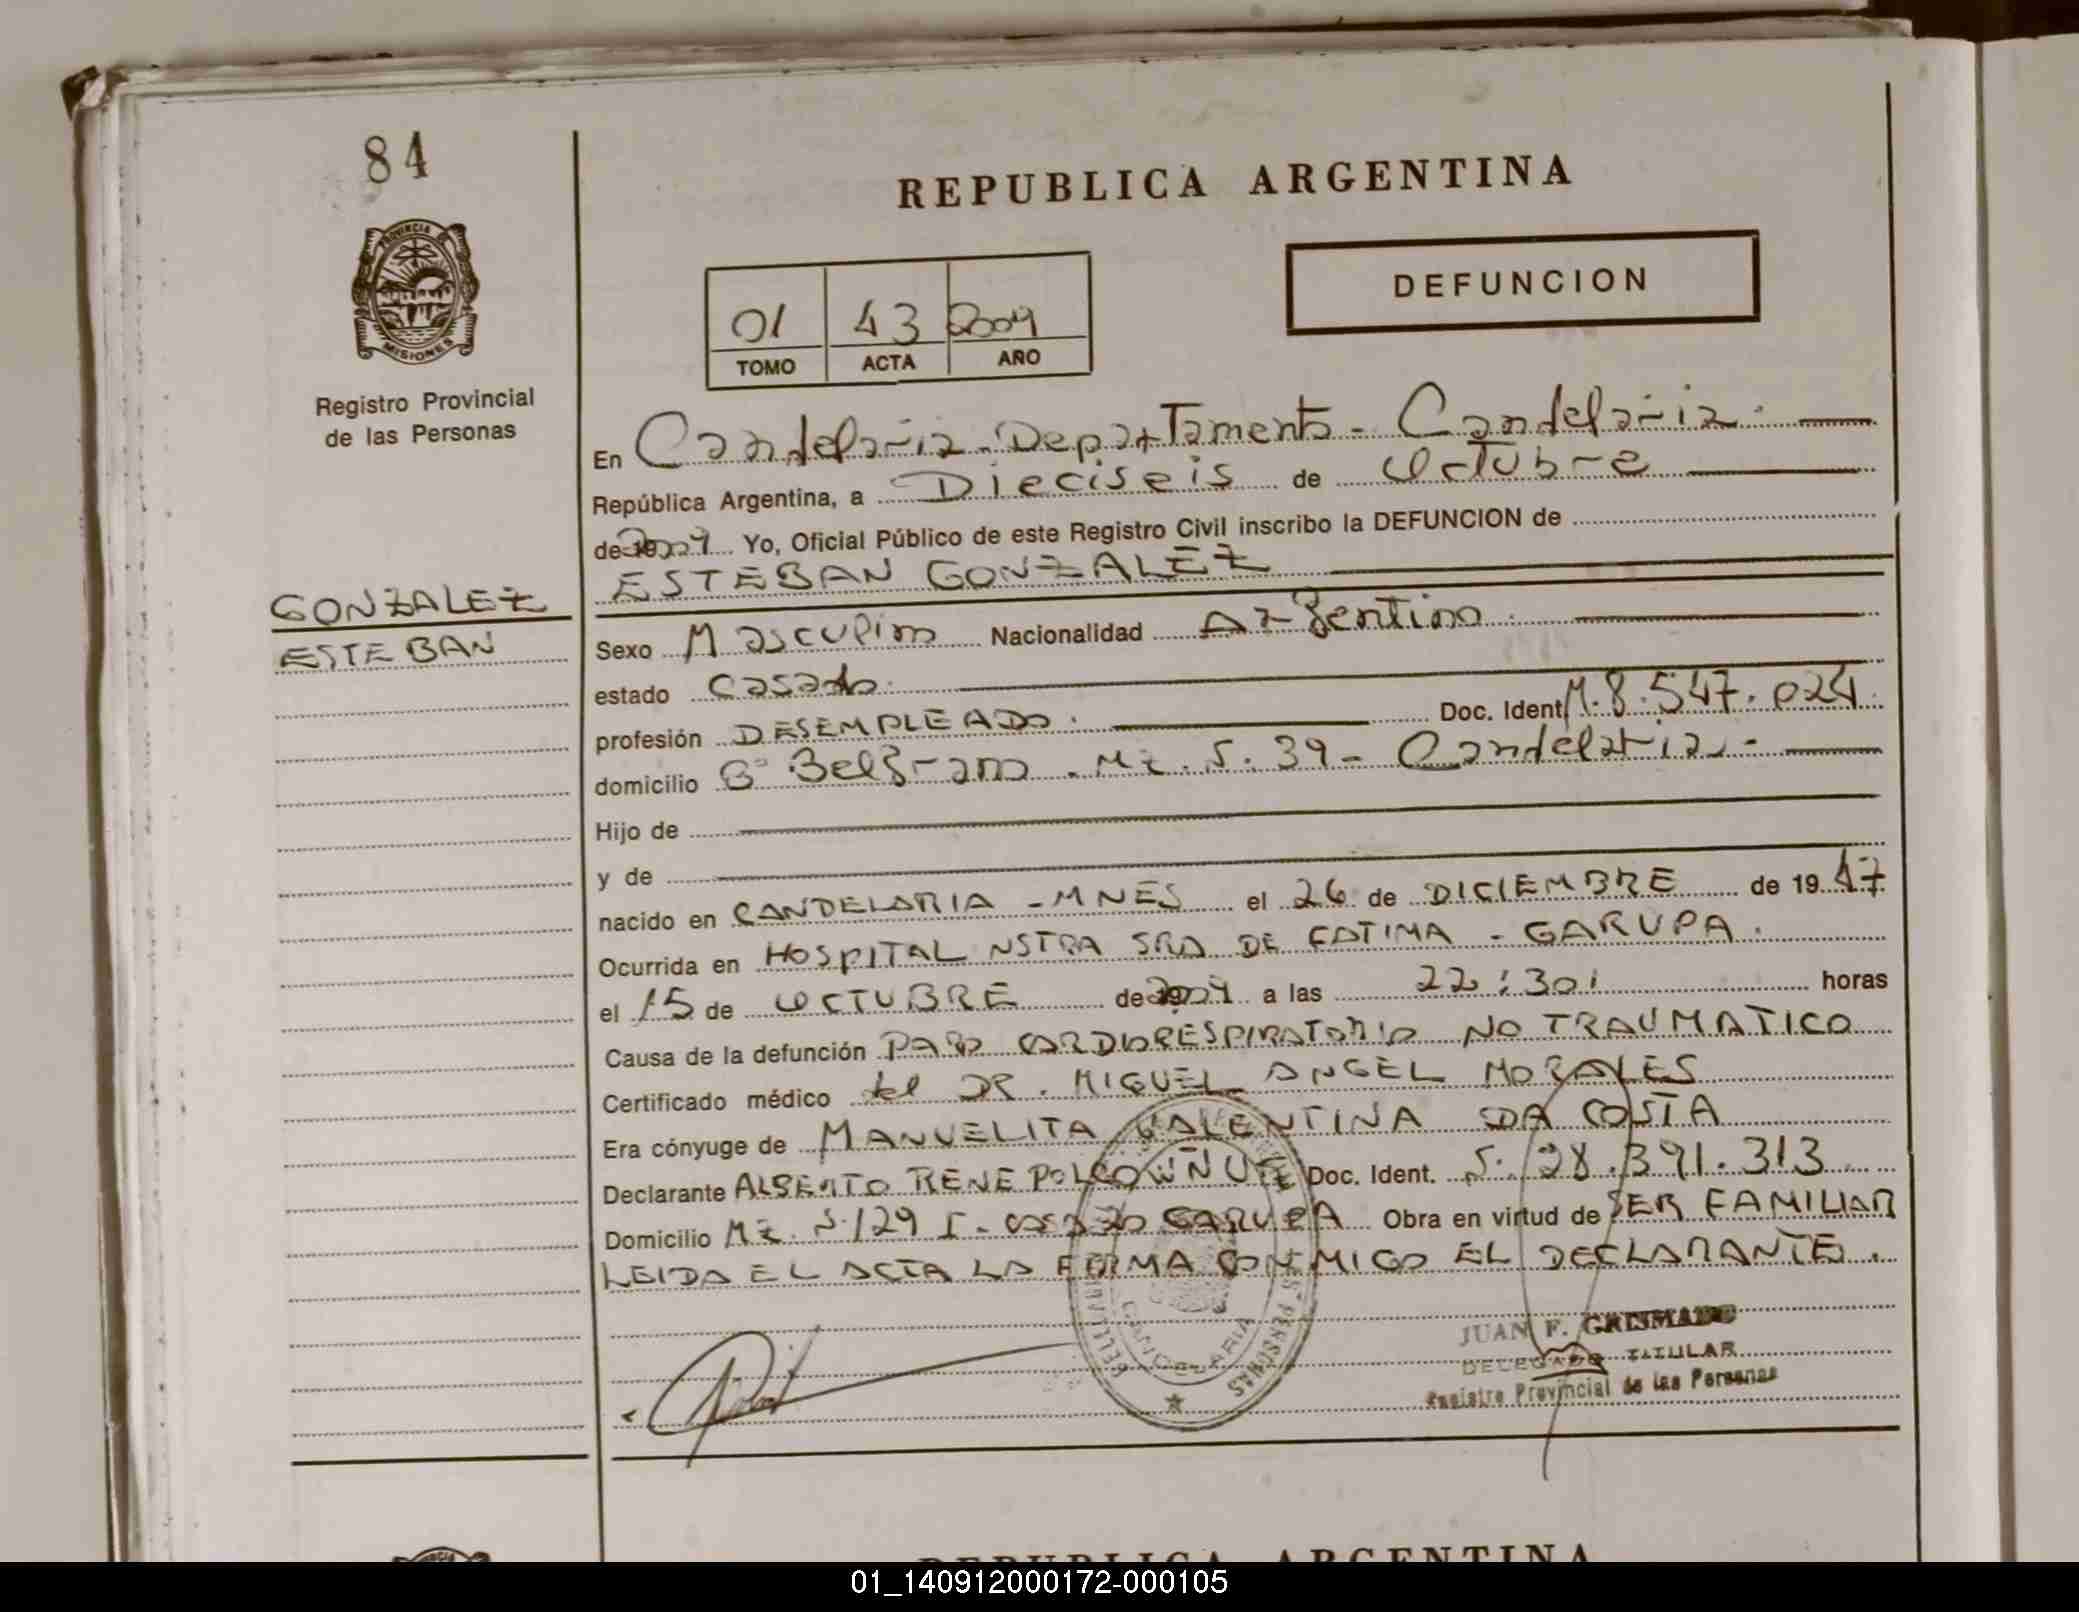 84
REPUBLICA ARGENTINA
DEFUNCION
PROVINCIA
MISIONES
01 43 2004
TOMO ACTA AÑO
Registro Provincial
de las Personas
En Candelaria - Departamento - Candelaria.
República Argentina, a Dieciseis de Octubre
de 2004 Yo, Oficial Público de este Registro Civil inscribo la DEFUNCION de
ESTEBAN GONZALEZ
GONZALEZ
ESTEBAN
Sexo Masculino Nacionalidad Argentino.
estado Casado.
profesión DESEMPLEADO. Doc. Ident M. 8.547.024.
domicilio Bº Belgrano - Mz. S. 39 - Candelaria -
Hijo de
y de
nacido en CANDELARIA - MNES el 26 de DICIEMBRE de 19 47
Ocurrida en HOSPITAL NSTRA SRA DE FATIMA - GARUPA.
el 15 de OCTUBRE de 2004 a las 22:30 horas
Causa de la defunción PARO CARDIORESPIRATORIO NO TRAUMATICO
Certificado médico del DR. MIGUEL ANGEL MORALES
Era cónyuge de MANUELITA VALENTINA DA COSTA
Declarante ALBERTO RENE Doc. Ident. 28.391.313
Domicilio Mz. GARUPA Obra en virtud de SER FAMILIAR
LEIDA EL ACTA LA FIRMA CONMIGO EL DECLARANTE.
CANDELARIA
JUAN F.
DELEGADO TITULAR
Registro Provincial de las Personas
REPUBLICA ARGENTINA
01_140912000172-000105